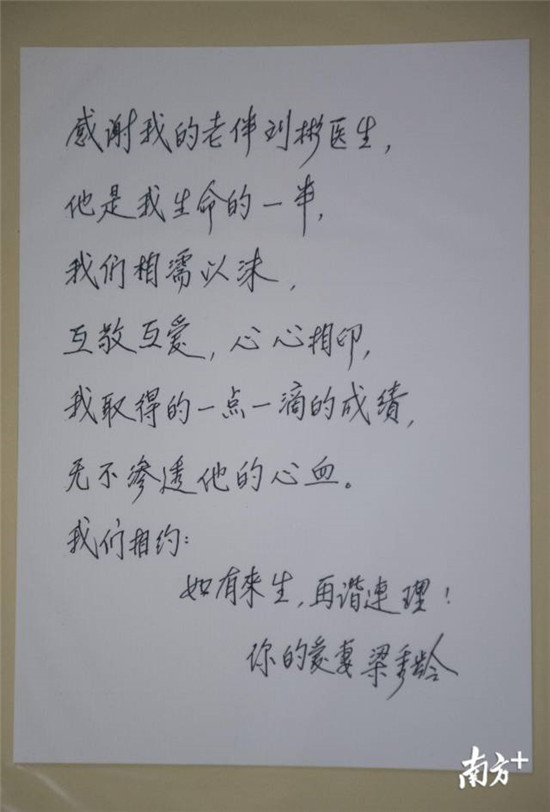 感谢我的老伴刘彬医生，
他是我生命的一半，
我们相濡以沫，
互敬互爱，心心相印，
我取得的一点一滴的成绩，
无不渗透他的心血。
我们相约：
如有来生，再谐连理！
你的爱妻梁秀龄
南方+